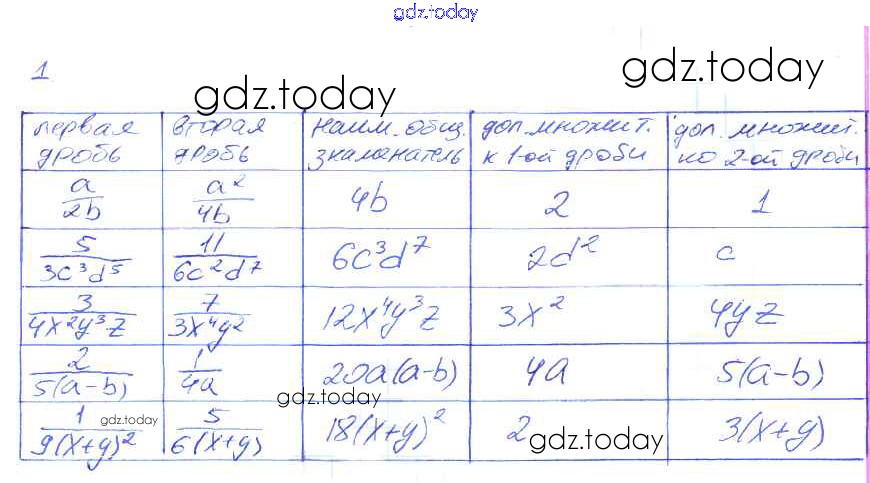 gdz.today
1
gdz.today gdz.today
первая дробь | вторая дробь | наим. общ. знаменатель | доп. множит. к 1-ой дроби | доп. множит. ко 2-ой дроби
a/2b | a²/4b | 4b | 2 | 1
5/3c³d⁵ | 11/6c²d⁷ | 6c³d⁷ | 2d² | c
3/4x²y³z | 7/3x⁴y² | 12x⁴y³z | 3x² | 4yz
2/5(a-b) | 1/4a | 20a(a-b) | 4a | 5(a-b)
gdz.today
1/9(x+y)² | 5/6(x+y) | 18(x+y)² | 2 | 3(x+y)
gdz.today
gdz.today